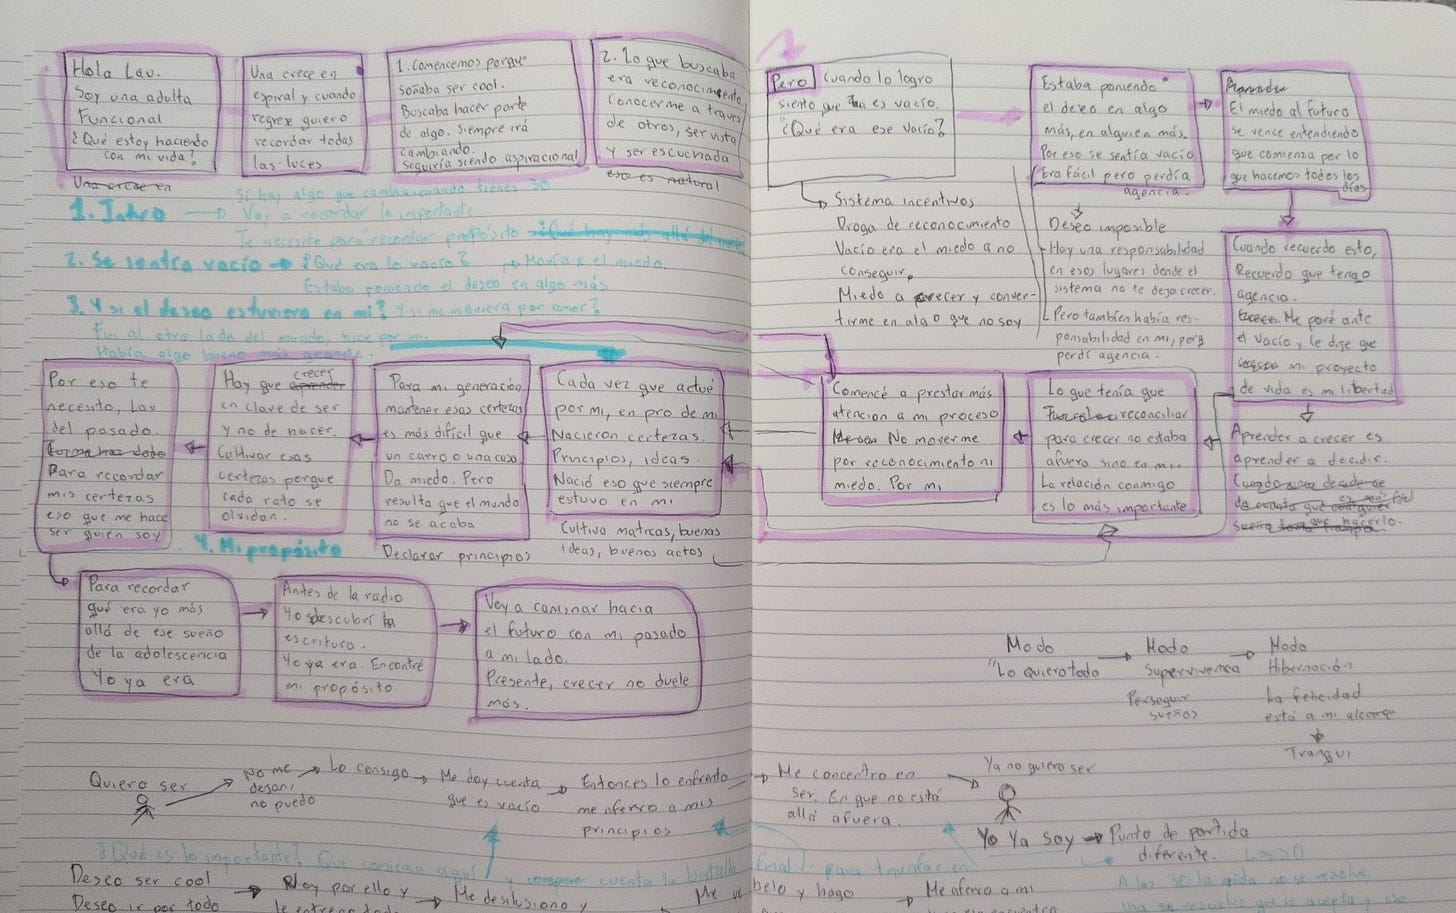 Hola Lau.
Soy una adulta
Funcional
¿Qué estoy haciendo
con mi vida?
Una crece en
Una crece en
espiral y cuando
regrese quiero
recordar todas
las luces
1. Comencemos porque
soñaba ser cool.
Buscaba hacer parte
de algo. Siempre irá
cambiando.
Seguiría siendo aspiracional
2. Lo que buscaba
era reconocimiento
Conocerme a través
de otros, ser vista
Y ser escuchada
eso es natural
Sí hay algo que cambia cuando tienes 30
1. Intro → Voy a recordar lo importante
Te necesito para recordar propósito
2. Se sentía vacío → ¿Qué era lo vacío? → Movía x el miedo.
Estaba poniendo el deseo en algo más
3. Y si el deseo estuviera en mi? Y si me moviera por amor?
Fui al otro lado del mundo, hice por mi.
Había algo bueno más grande.
Pero cuando lo logro
siento que es vacío.
¿Qué era ese Vacío?
Sistema incentivos
Droga de reconocimiento
Vacío era el miedo a no
conseguir.
Miedo a crecer y conver-
tirme en algo que no soy
Estaba poniendo
el deseo en algo
más, en alguien más.
Por eso se sentía vacío
Era fácil pero perdía
agencia.
Deseo imposible
Hay una responsabilidad
en esos lugares donde el
sistema no te deja crecer.
Pero también había res-
ponsabilidad en mi, pero
perdí agencia.
Aprender
El miedo al futuro
se vence entendiendo
que comienza por lo
que hacemos todos los
días
Cuando recuerdo esto,
Recuerdo que tengo
agencia.
Me paré ante
el vacío y le dije que
mi proyecto
de vida es mi libertad
Aprender a crecer es
aprender a decidir.
Lo que tenía que
reconciliar
para crecer no estaba
afuera sino en mi.
La relación conmigo
es lo más importante
Comencé a prestar más
atencion a mi proceso
No moverme
por reconocimiento ni
miedo. Por mi
Cada vez que actué
por mi, en pro de mi
Nacieron certezas.
Principios, ideas.
Nació eso que siempre
estuvo en mi
Cultivo matices, buenas
ideas, buenos actos
Para mi generación
mantener esas certezas
es más difícil que
un carro o una casa
Da miedo. Pero
resulta que el mundo
no se acaba
Declarar principios
Hay que aprender crecer
en clave de ser
y no de hacer.
Cultivar esas
certezas porque
cada rato se
olvidan.
Por eso te
necesito, Lau
del pasado.
Para recordar
mis certezas
eso que me hace
ser quien soy
4. Mi propósito
Para recordar
qué era yo más
allá de ese sueño
de la adolescencia
Yo ya era
Antes de la radio
Yo descubrí la
escritura.
Yo ya era. Encontré
mi propósito.
Voy a caminar hacia
el futuro con mi pasado
a mi lado.
Presente, crecer no duele
más.
Modo
"Lo quiero todo
Modo
Supervivencia
Perseguir
sueños
Modo
Hibernación
La felicidad
está a mi alcance
Tranqui
Quiero ser
No me
dejan,
no puedo
Lo consigo
Me doy cuenta
que es vacío
Entonces lo enfrento
me aferro a mis
principios
Me concentro en
ser. En que no está
allá afuera.
Ya no quiero ser
Yo Ya soy → Punto de partida
diferente. Los 30
¿Qué es lo importante? Que comienza aquí y cuenta la batalla final
A los 30 la vida no se resuelve,
Deseo ser cool
Deseo ir por todo
Voy por ello y
le entrego todo
Me desilusiono y
belo y hago
Me aferro a mi